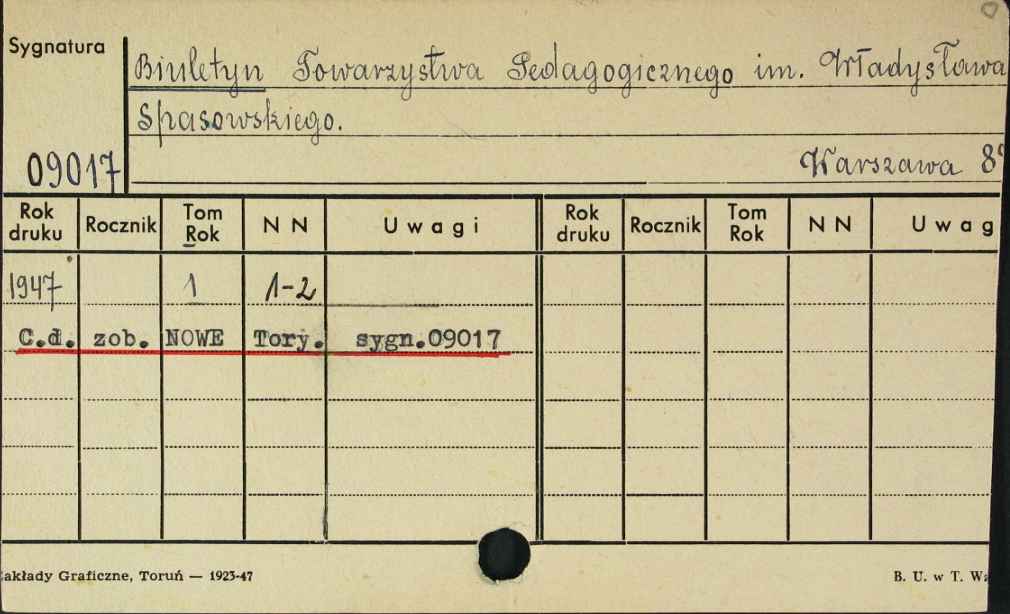 Sygnatura
Biuletyn Towarzystwa Pedagogicznego im. Władysława
Spasowskiego.
09017
Warszawa 8°
Rok druku Rocznik Tom Rok N N Uwagi Rok druku Rocznik Tom Rok N N Uwag
1947 1 1-2
C.d. zob. NOWE Tory. sygn.09017
akłady Graficzne, Toruń — 1923-47
B. U. w T. Wz